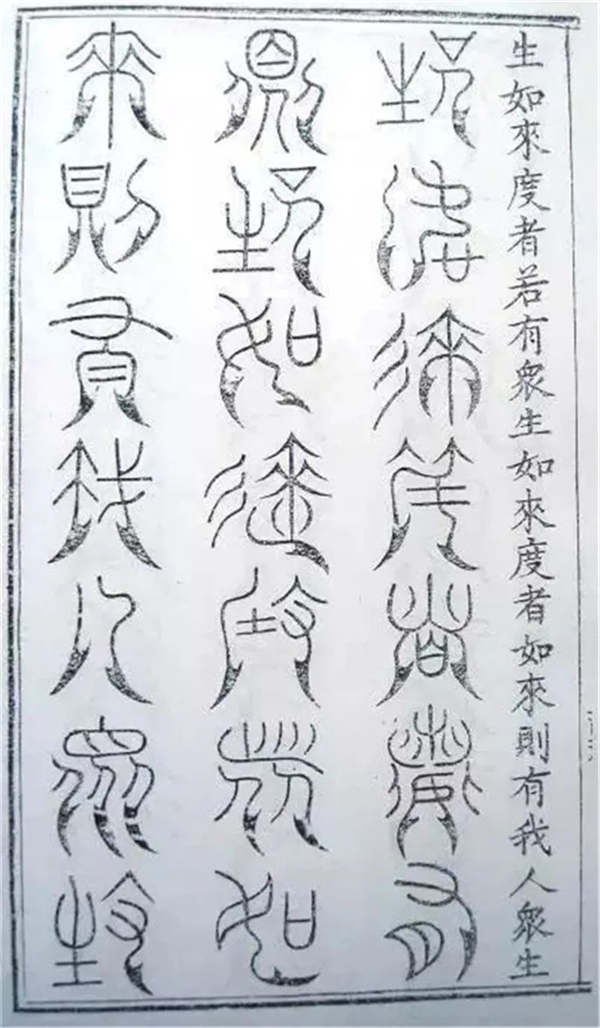 生如來度者若有眾生如來度者如來則有我人眾生
生如來度者若有
眾生如來度者如
來則有我人眾生